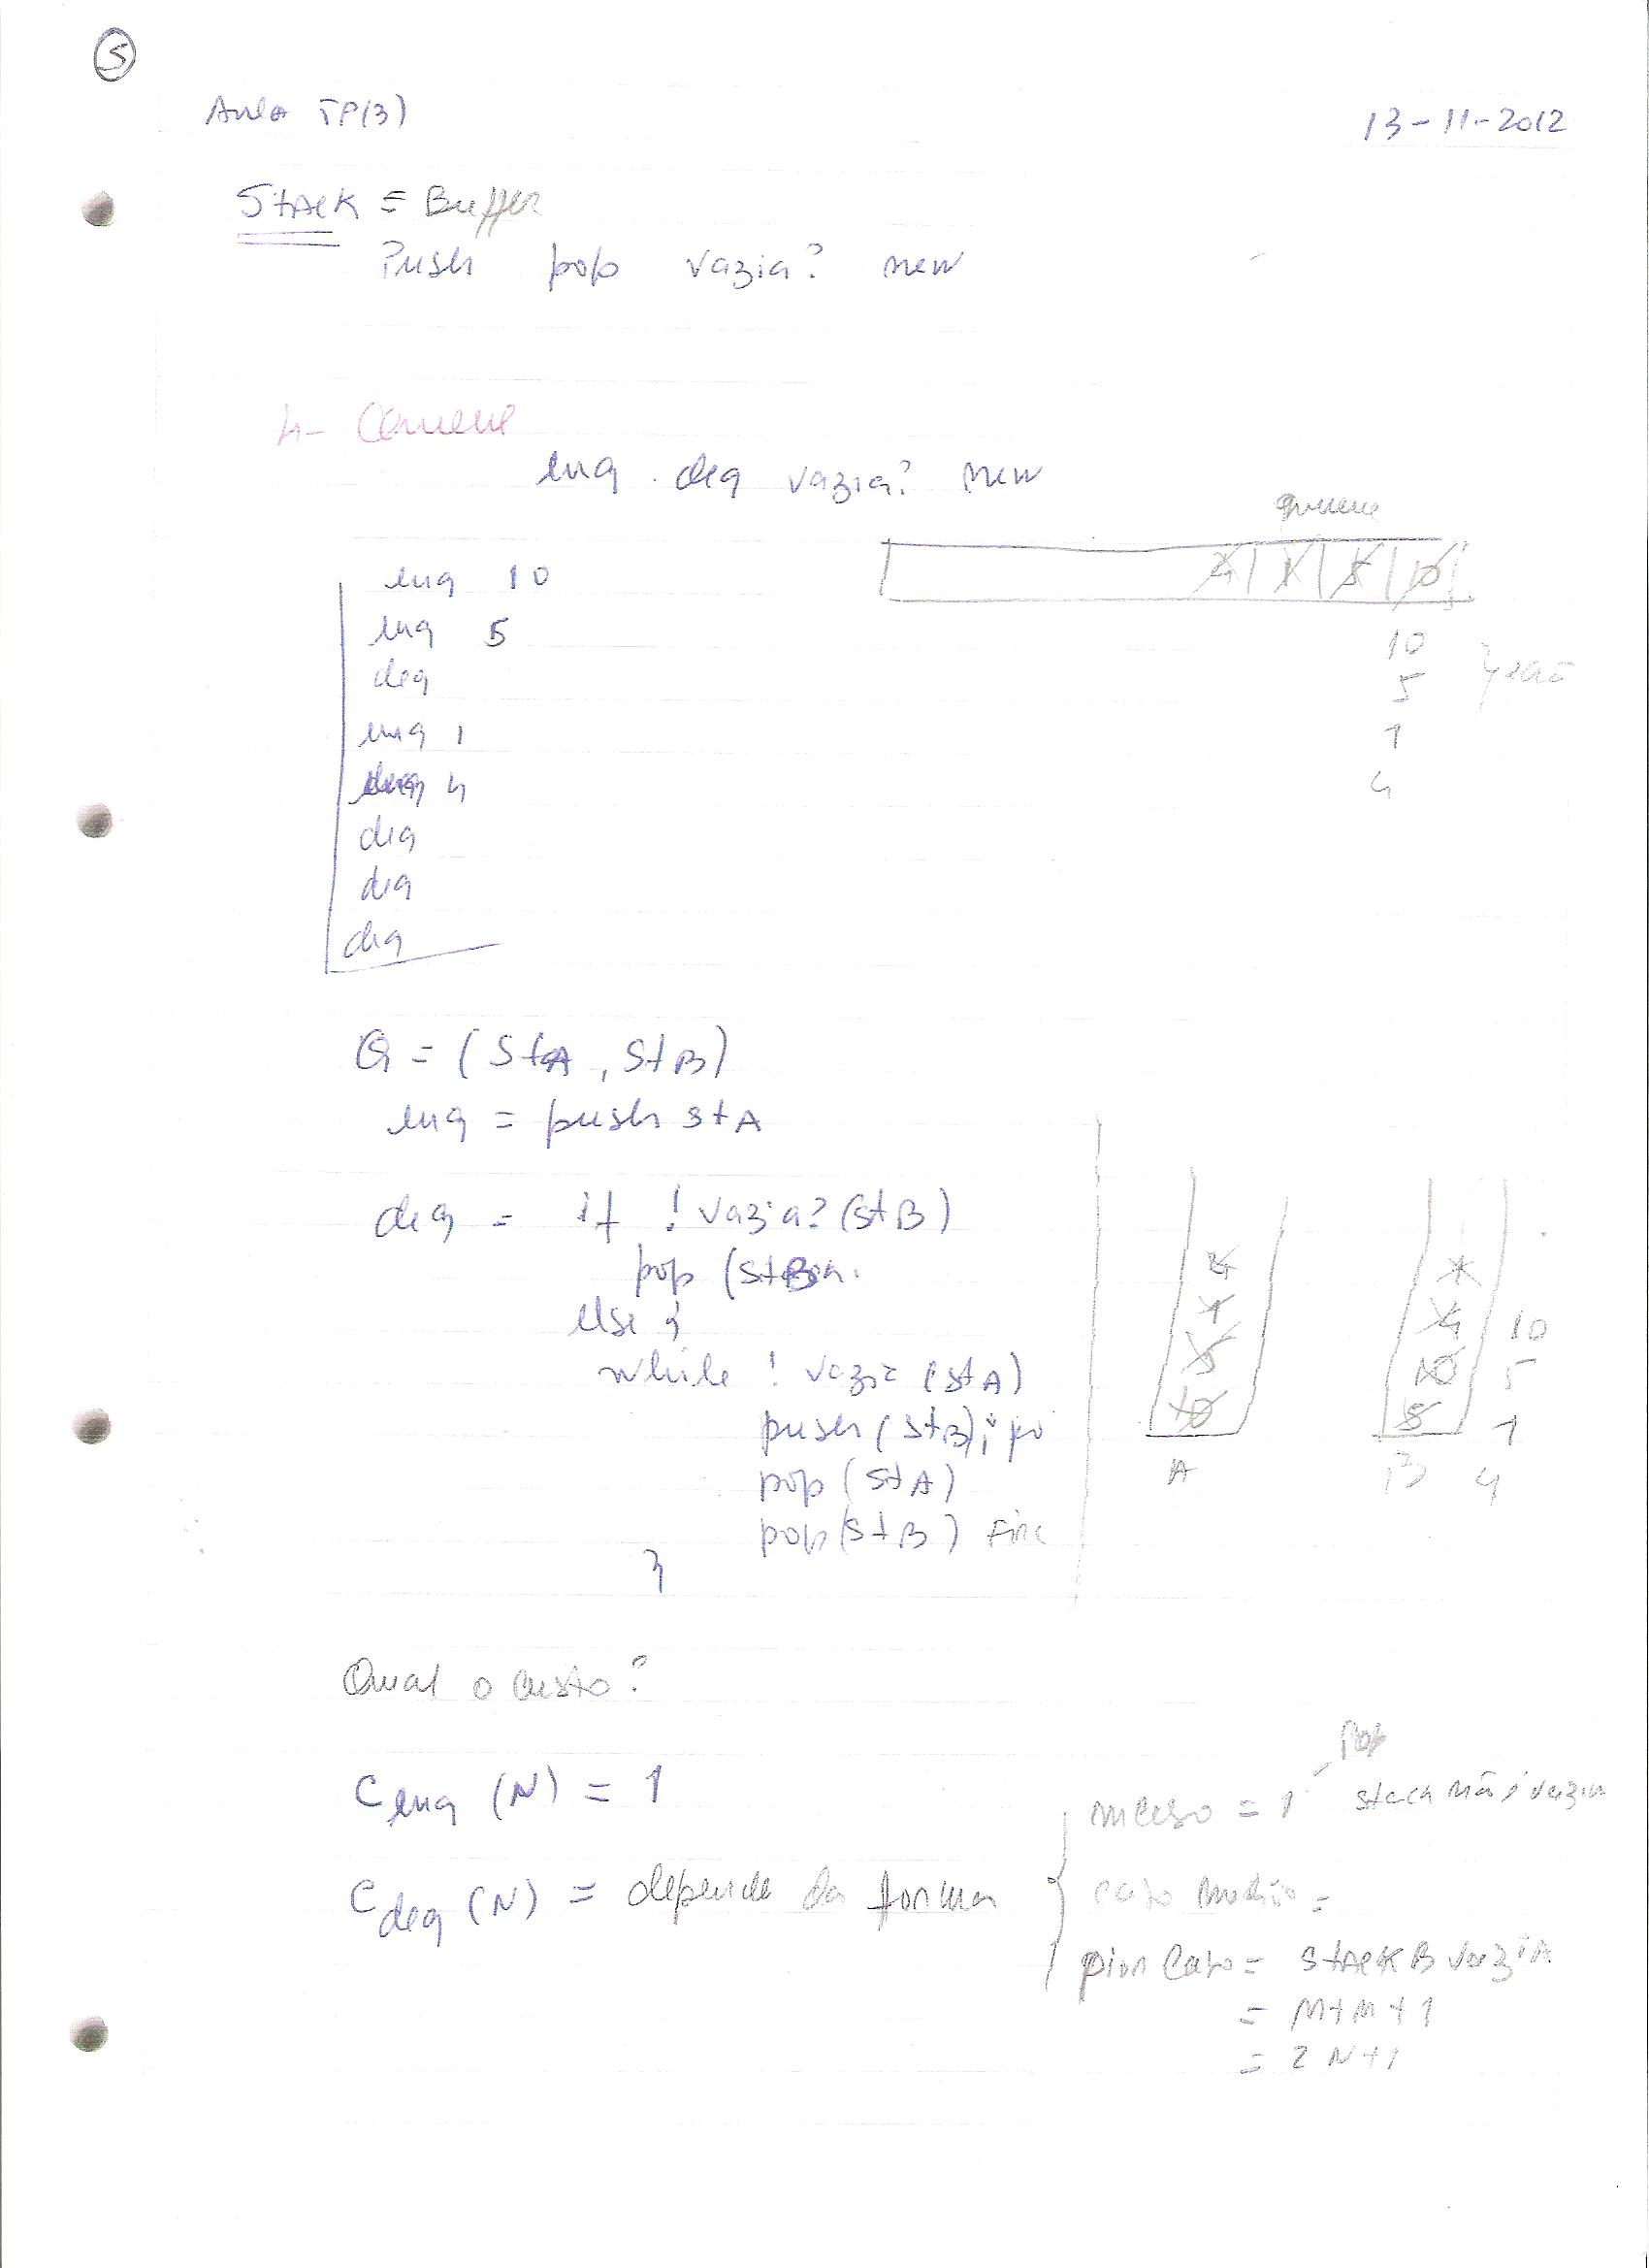 5
Aula TP(3)
13-11-2012
Stack = Buffer
Push pop vazia? new
4-
enq . deq vazia? new
queue
4 1 5 10
enq 10
enq 5
deq
enq 1
enq 4
deq
deq
deq
10
5
1
4
Q = (StA, StB)
enq = push stA
deq = if ! vazia? (StB)
pop (StB
else {
while ! vazia (stA)
push (StB);
pop (StA)
pop (StB)
}
4
1
5
10
A
1
4
10
5
B
10
5
1
4
Qual o custo?
C enq (N) = 1
C deq (N) = depende da forma
melhor caso = 1
Pop
stack não é vazia
caso medio =
pior caso = stack B vazia
= N+N+1
= 2N+1